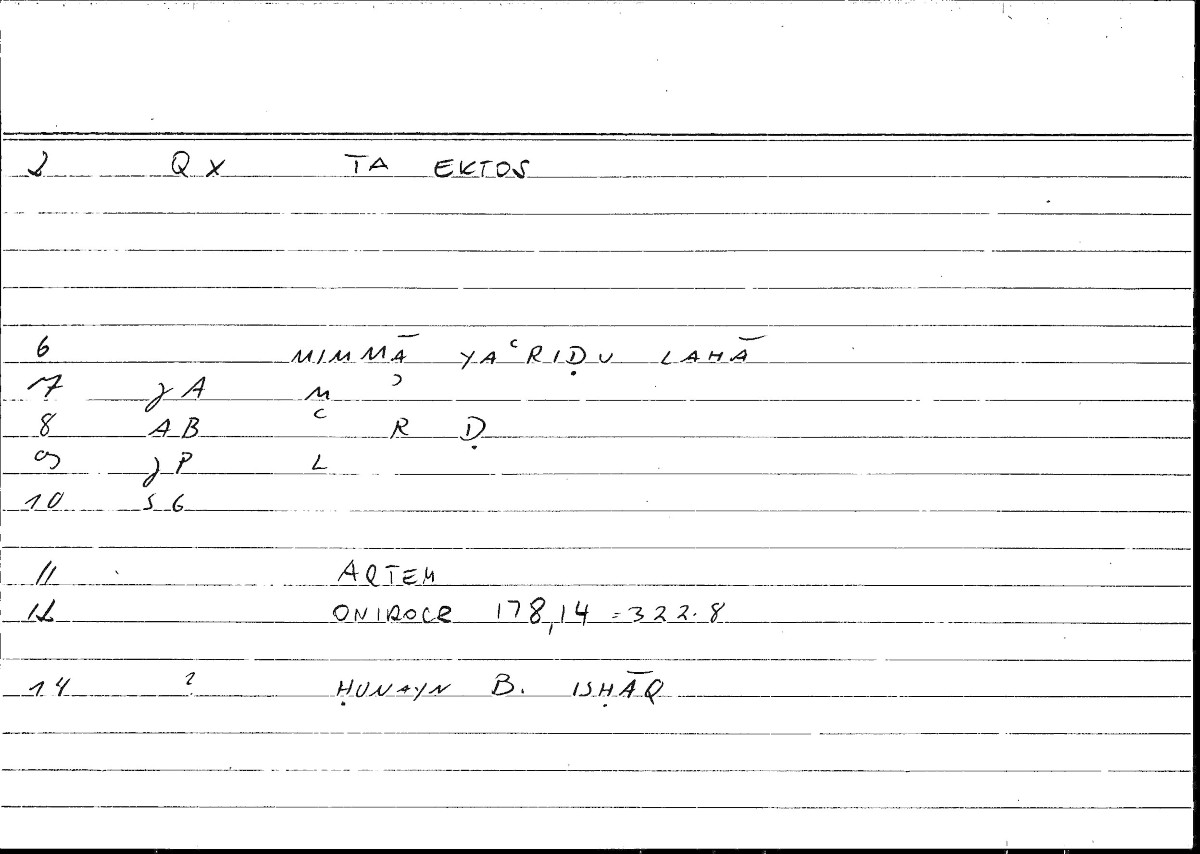 2 QX TA EKTOS
6 MIMMĀ YAʿRIḌU LAHĀ
7 γA M ʾ
8 AB ʿ R Ḍ
9 γP L
10 SG
11 ARTEM
12 ONIROCR 178,14 = 322.8
14 ? ḤUNAYN B. ISḤĀQ